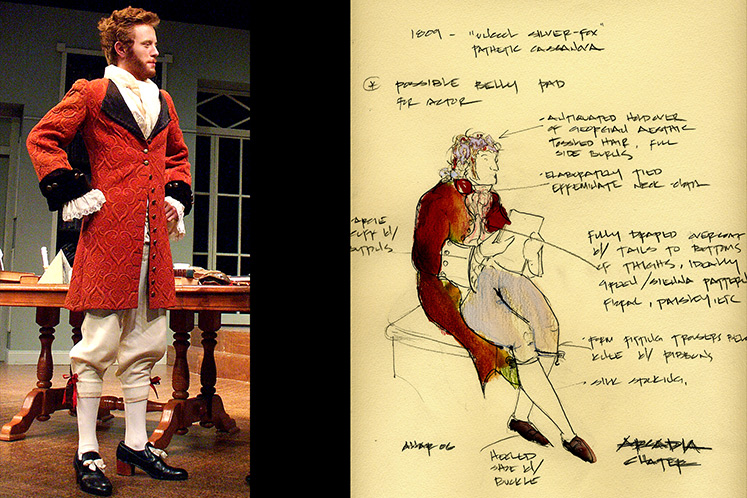 1809 - "UNCOOL SILVER-FOX"
PATHETIC CASSANOVA
* POSSIBLE BELLY PAD
FOR ACTOR
- ANTIQUATED HOLDOVER
OF GEORGIAN AESTHETIC
TOUSSLED HAIR, FULL
SIDE BURNS
- ELABORATELY TIED
EFFEMINATE NECK CLOTH
CUFF W/
BUTTONS
FULLY DRAPED OVERCOAT
W/ TAILS TO BOTTOMS
OF THIGHS, IDEALLY
GREEN/SIENNA PATTERN
FLORAL, PAISLEY, ETC
- FORM FITTING TROUSERS BELOW
KNEE W/ RIBBONS
- SILK STOCKING.
06
HEELED
SHOE W/
BUCKLE
ARCADIA
CHATER